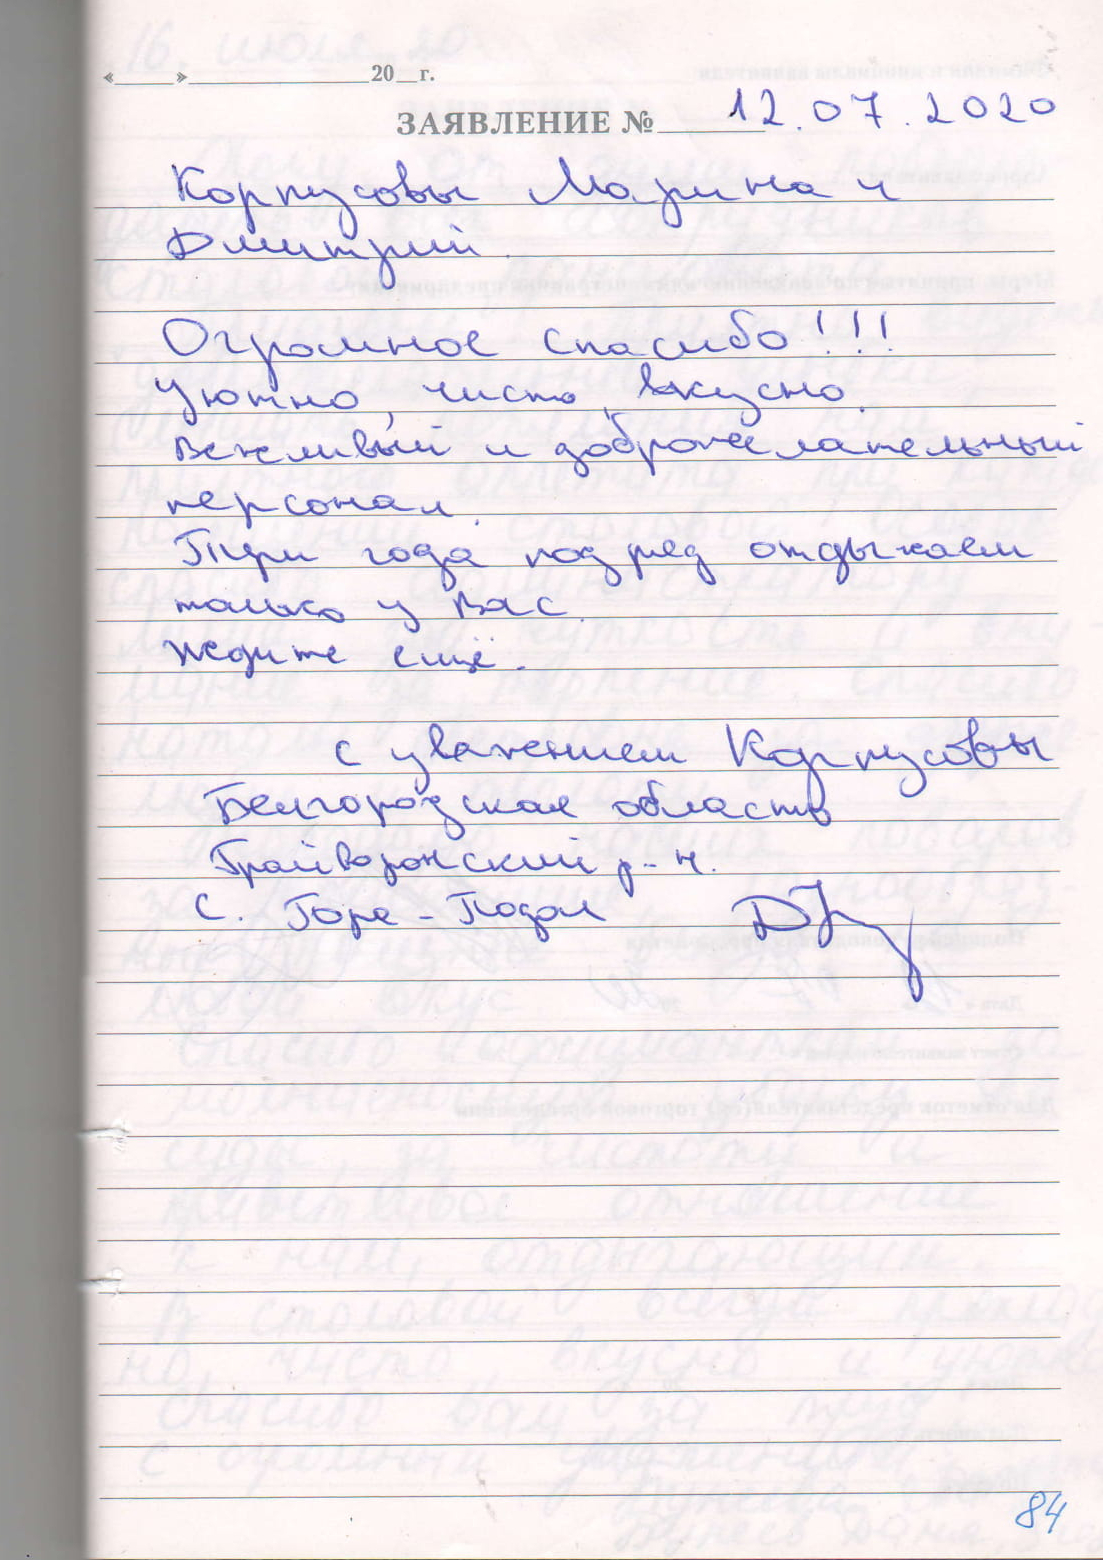 «_____»________________20__г.
ЗАЯВЛЕНИЕ №
12.07.2020
Корпусовы Марина и
Дмитрий.
Огромное спасибо!!!
Уютно, чисто, вкусно.
Вежливый и доброжелательный
персонал.
Три года подряд отдыхаем
только у Вас.
Ждите ещё.
С уважением Корпусовы
Белгородская область
Грайворонский р-н.
С. Гора-Подол
84